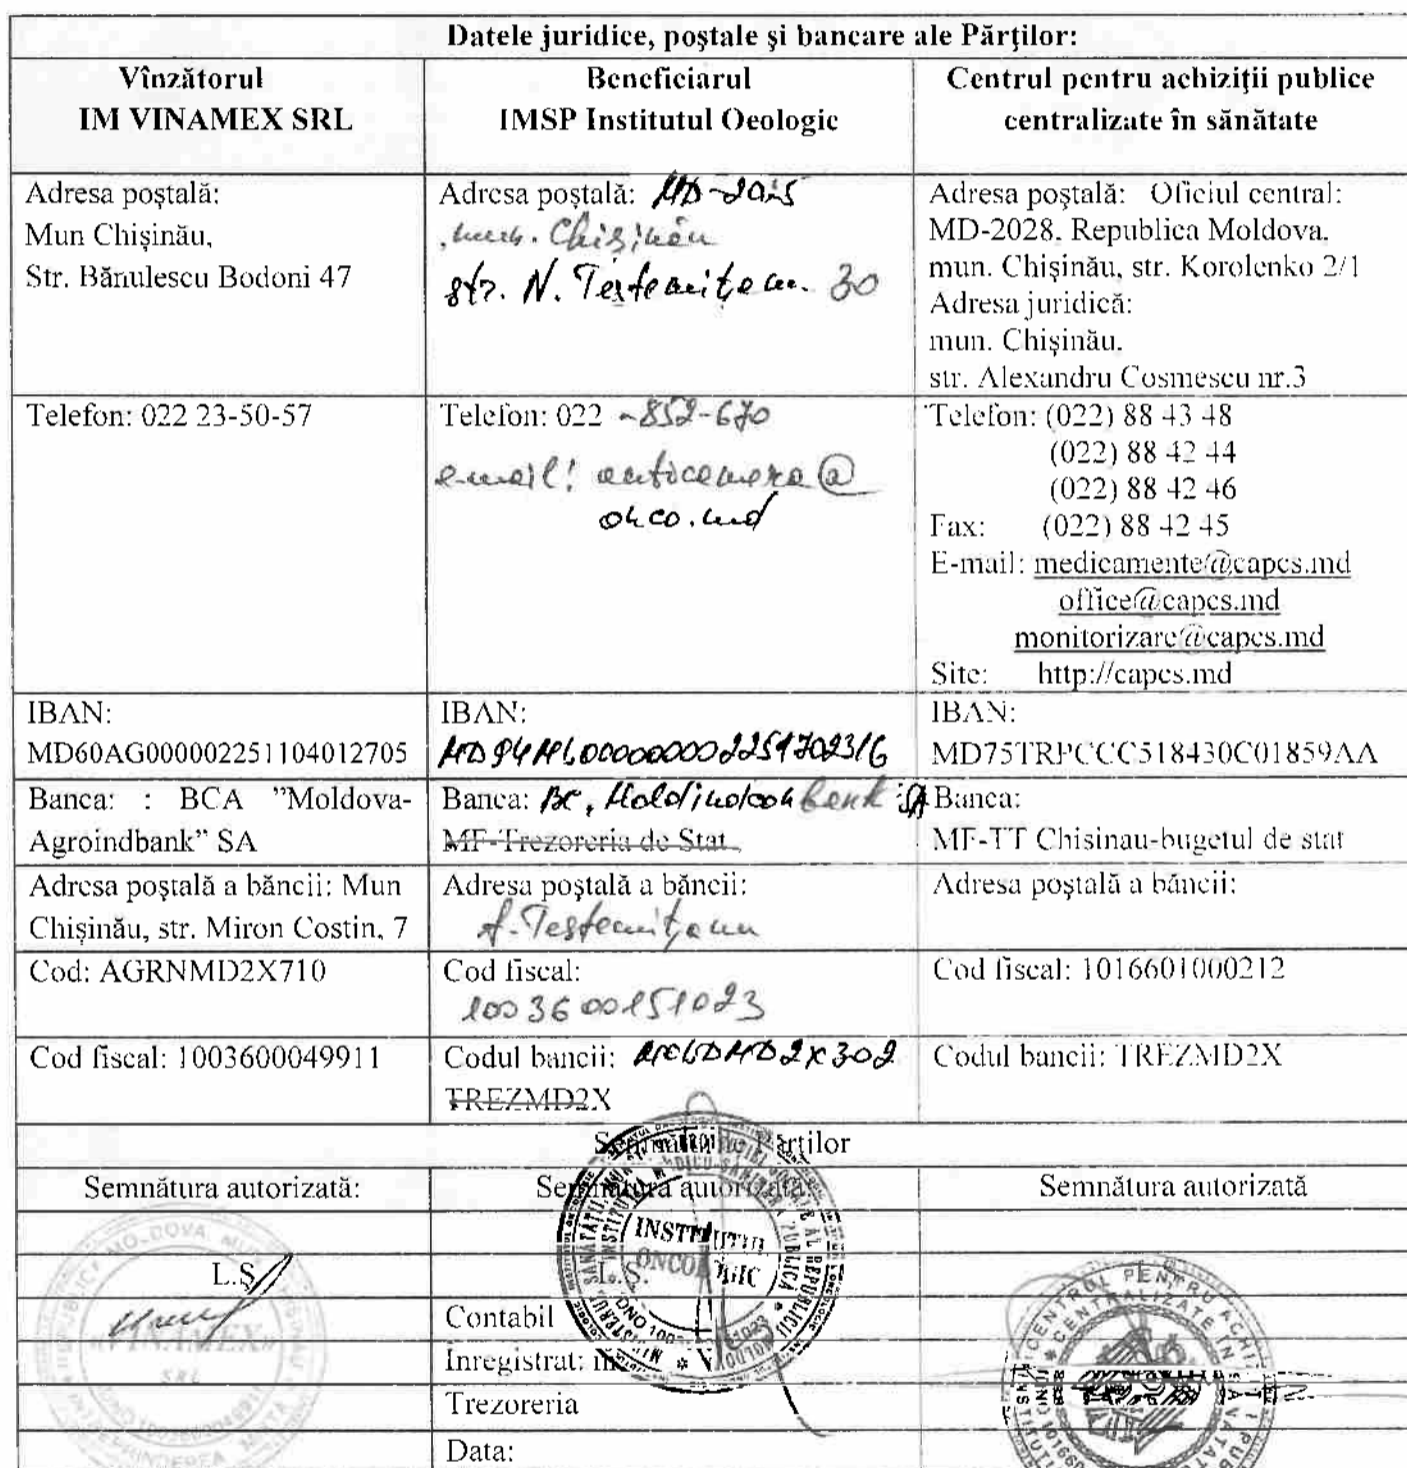 Datele juridice, poştale şi bancare ale Părţilor:
Vînzătorul
IM VINAMEX SRL
Beneficiarul
IMSP Institutul Oeologic
Centrul pentru achiziţii publice
centralizate în sănătate
Adresa poştală:
Mun Chişinău,
Str. Bănulescu Bodoni 47
Adresa poştală: MD-2025
, mun. Chişinău
str. N. Testemiţeanu 30
Adresa poştală: Oficiul central:
MD-2028, Republica Moldova,
mun. Chişinău, str. Korolenko 2/1
Adresa juridică:
mun. Chişinău,
str. Alexandru Cosmescu nr.3
Telefon: 022 23-50-57
Telefon: 022 -852-670
e-mail: anticamera@
onco.md
Telefon: (022) 88 43 48
(022) 88 42 44
(022) 88 42 46
Fax: (022) 88 42 45
E-mail: medicamente@capcs.md
office@capcs.md
monitorizare@capcs.md
Site: http://capcs.md
IBAN:
MD60AG000002251104012705
IBAN:
IBAN:
MD75TRPCCC518430C01859AA
Banca: : BCA ”Moldova-
Agroindbank” SA
Banca: BC, Moldindconbank SA
MF-Trezoreria de Stat
Banca:
MF-TT Chisinau-bugetul de stat
Adresa poştală a băncii: Mun
Chişinău, str. Miron Costin, 7
Adresa poştală a băncii:
Testemiţanu
Adresa poştală a băncii:
Cod: AGRNMD2X710
Cod fiscal:
1003600151023
Cod fiscal: 1016601000212
Cod fiscal: 1003600049911
Codul bancii: MOLDMD2X302
TREZMD2X
Codul bancii: TREZMD2X
Semnăturile Părţilor
Semnătura autorizată:
Semnătura autorizată:
Semnătura autorizată
L.Ş
L.Ş.
Contabil
Inregistrat:
Trezoreria
Data:
«VINAMEX»
SRL
INSTITUTUL
ONCOLOGIC
CENTRUL PENTRU ACHIZIŢII PUB
CENTRALIZATE ÎN SĂNĂTATE